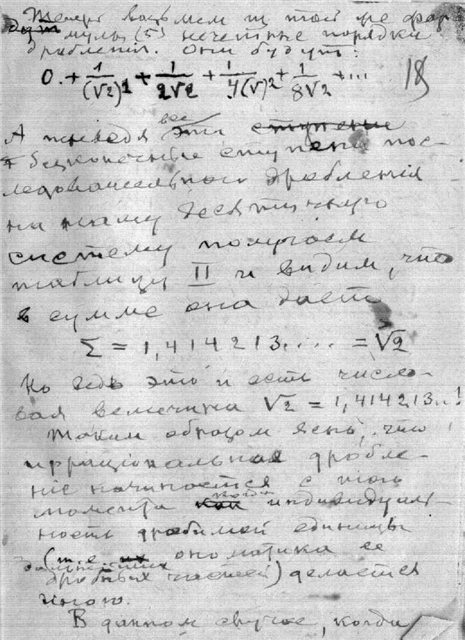 Теперь возьмем из той же фор
мулы (5) нечетные порядки
дробленія. Они будут:
0. + 1/(√2)¹ + 1/2√2 + 1/4(√)² + 1/8√2 + ... 18
А приведя все эти
безконечные ступени пос-
ледовательнаго дробленія
на нашу десятичную
систему получаем
таблицу II и видим, что
в сумме она дает
Σ = 1,414213..... = √2
Но ведь это и есть число-
вая величина √2 = 1,414213..!
Таким образом ясно, что
ирраціональное дробле-
ніе начинается с того
момента когда индивидуаль-
ность дробимой единицы
(т.е. ономатика ее
дробных частей) делается
иною.
В данном случае, когда